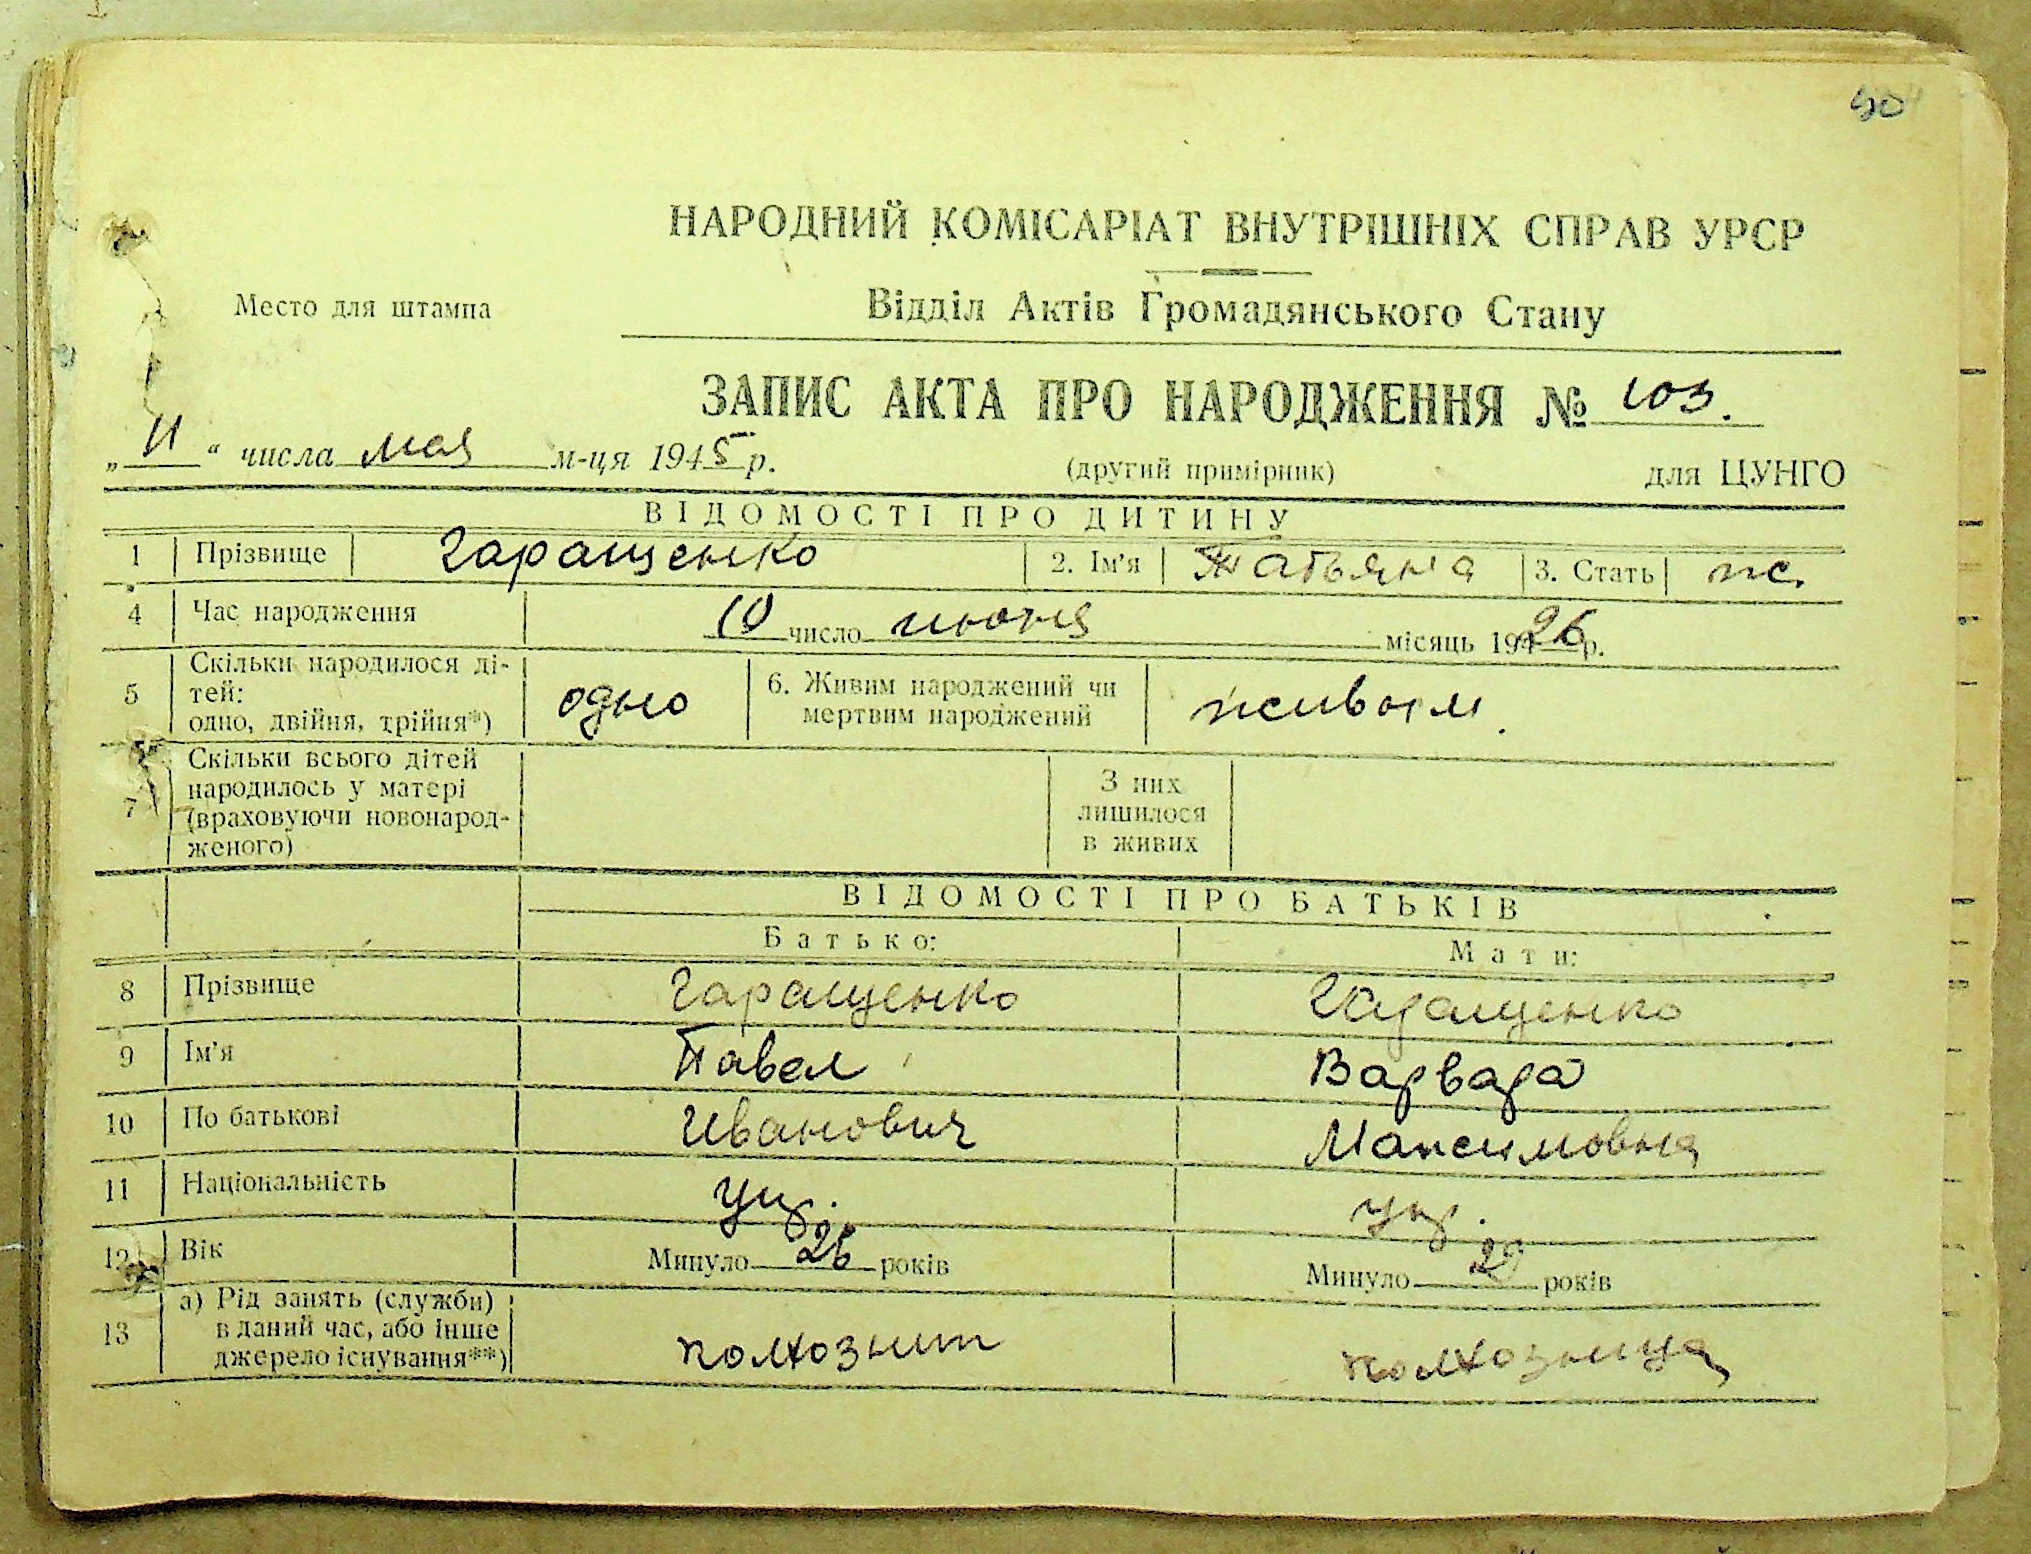 40
НАРОДНИЙ КОМІСАРІАТ ВНУТРІШНІХ СПРАВ УРСР
Место для штампа
Відділ Актів Громадянського Стану
ЗАПИС АКТА ПРО НАРОДЖЕННЯ № 103.
„ 11 “ числа мая м-ця 1945 р.
(другий примірник) для ЦУНГО
ВІДОМОСТІ ПРО ДИТИНУ
1 Прізвище Гаращенко 2. Ім'я Татьяна 3. Стать ж.
4 Час народження 10 число июня місяць 1926 р.
5 Скільки народилося ді-
тей:
одно, двійня, трійня*) одно 6. Живим народжений чи
мертвим народжений живым.
7 Скільки всього дітей
народилось у матері
(враховуючи новонарод-
женого)
З них
лишилося
в живих
ВІДОМОСТІ ПРО БАТЬКІВ
Батько: Мати:
8 Прізвище Гаращенко Гаращенко
9 Ім'я Павел Варвара
10 По батькові Иванович Максимовна
11 Національність укр. укр.
12 Вік Минуло 26 років Минуло років
13 а) Рід занять (служби)
в даний час, або інше
джерело існування**) колхозник колхозница